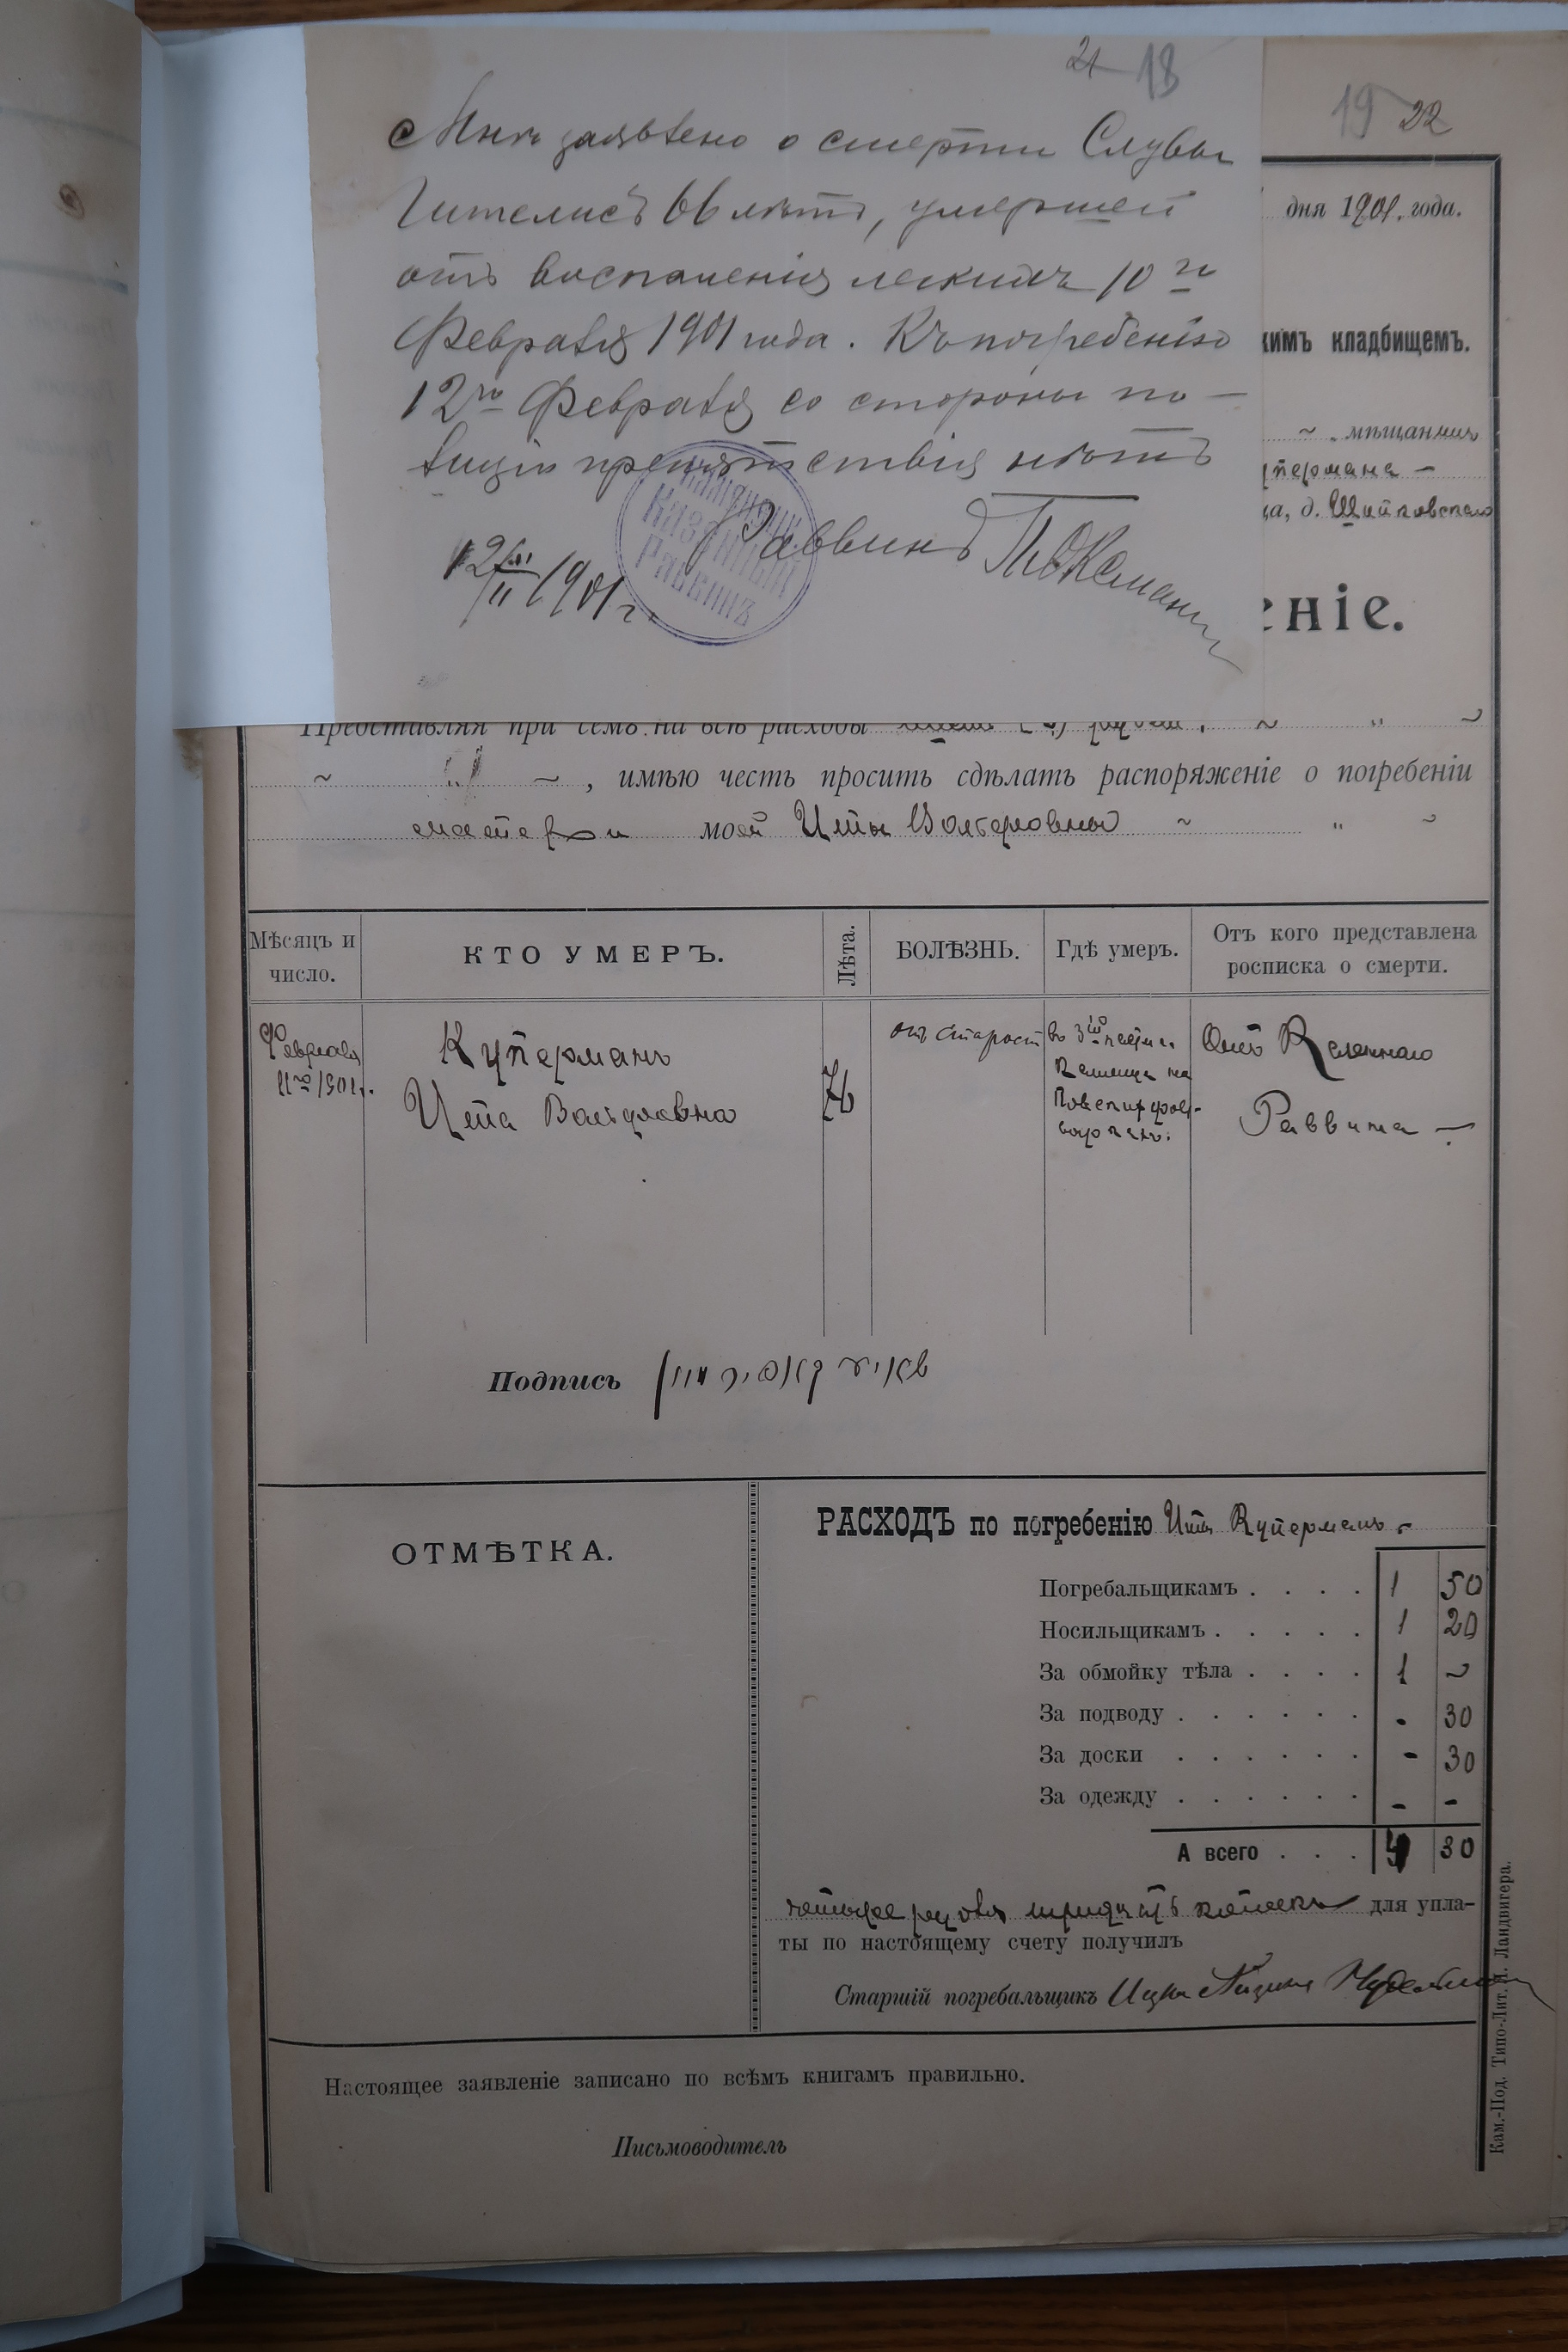 21 18
Мнѣ заявлено о смерти Слувы
Гителисъ 66 лѣтъ, умершей
отъ воспаленія легкихъ 10го
Февраля 1901 года. Къ погребенію
12го Февраля со стороны по-
лиціи препятствія нѣтъ
Раввинъ
12/II 1901 г.
Казенный
Раввинъ
19 22
дня 1901 года.
кимъ кладбищемъ.
мѣщанинъ
упермана
ца, д. Шитковскаго
еніе.
Представляя при семъ на всѣ расходы
, имѣю честь просить сдѣлать распоряженіе о погребеніи
матери моей Иты Вольфовны
Мѣсяцъ и число.
КТО УМЕРЪ.
Лѣта.
БОЛѢЗНЬ.
Гдѣ умеръ.
Отъ кого представлена росписка о смерти.
Февраля
11го 1901 г.
Куперманъ
Ита Вольфовна
76
отъ старости
въ 3й части
на
Отъ Казеннаго
Раввина
Подпись
ОТМѢТКА.
РАСХОДЪ по погребенію Иты Куперманъ
Погребальщикамъ . . . . 1 50
Носильщикамъ . . . . . 1 20
За обмойку тѣла . . . . 1 ~
За подводу . . . . . . - 30
За доски . . . . . . - 30
За одежду . . . . . . - -
А всего . . . 4 30
четыре рубля тридцать копѣекъ для упла-
ты по настоящему счету получилъ
Старшій погребальщикъ
Настоящее заявленіе записано по всѣмъ книгамъ правильно.
Письмоводитель
Кам.-Под. Типо-Лит. Л. Ландвигера.